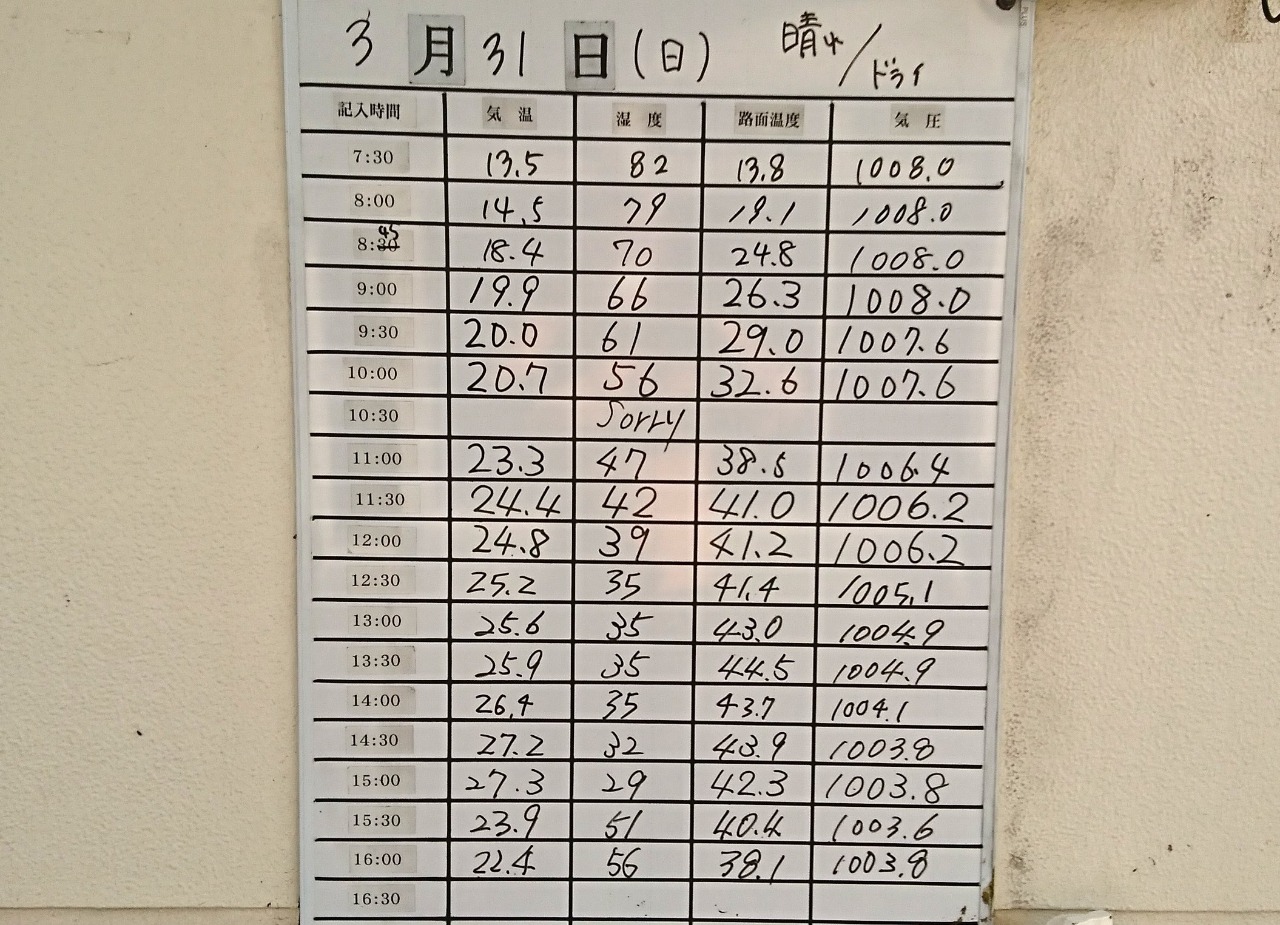 3月31日(日) 晴れ/ドライ
記入時間 気温 湿度 路面温度 気圧
7:30 13.5 82 13.8 1008.0
8:00 14.5 79 19.1 1008.0
8:30 45 18.4 70 24.8 1008.0
9:00 19.9 66 26.3 1008.0
9:30 20.0 61 29.0 1007.6
10:00 20.7 56 32.6 1007.6
10:30 Sorry
11:00 23.3 47 38.5 1006.4
11:30 24.4 42 41.0 1006.2
12:00 24.8 39 41.2 1006.2
12:30 25.2 35 41.4 1005.1
13:00 25.6 35 43.0 1004.9
13:30 25.9 35 44.5 1004.9
14:00 26.4 35 43.7 1004.1
14:30 27.2 32 43.9 1003.8
15:00 27.3 29 42.3 1003.8
15:30 23.9 51 40.4 1003.6
16:00 22.4 56 38.1 1003.8
16:30
PLUS